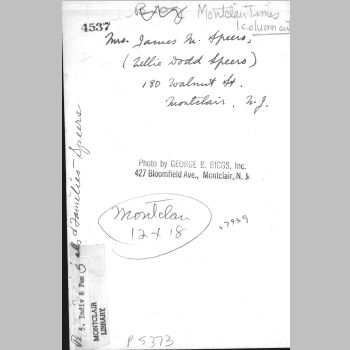 Montclair Times
1 column cut
4537
Mrs. James M. Speers,
(Nellie Dodd Speers)
180 Walnut St.
Montclair, N.J.
Photo by GEORGE B. BIGGS, Inc.
427 Bloomfield Ave., Montclair, N.J.
Montclair
12 x 18
27939
Families-Speers
MONTCLAIR
LIBRARY
P 5373